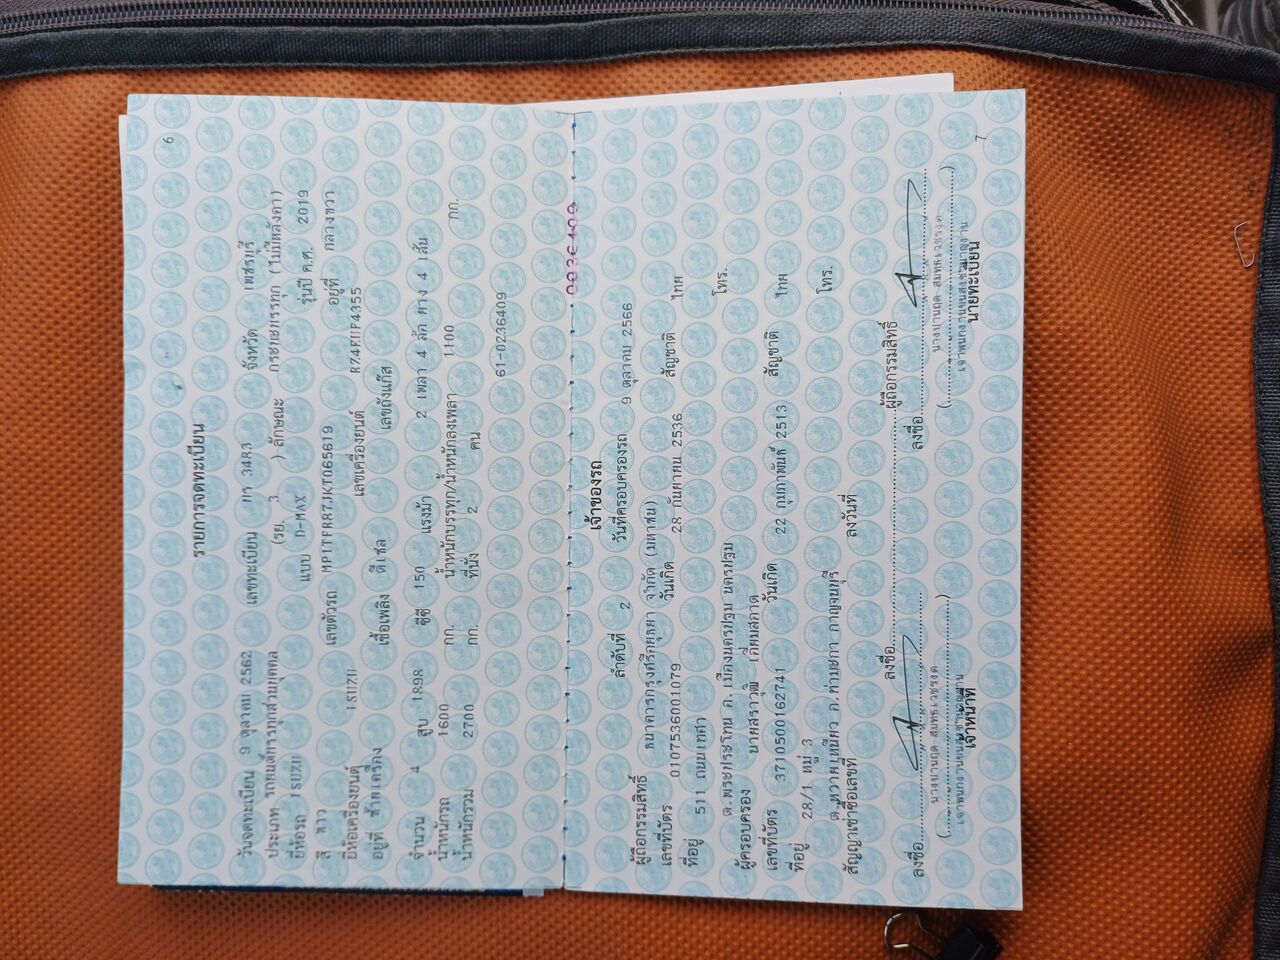 6
รายการจดทะเบียน
วันจดทะเบียน 9 ตุลาคม 2562 เลขทะเบียน 3483 จังหวัด เพชรบุรี
ประเภท รถยนต์บรรทุกส่วนบุคคล (รย. 3 ) ลักษณะ กระบะบรรทุก (ไม่มีหลังคา)
ยี่ห้อรถ ISUZU แบบ D-MAX รุ่นปี ค.ศ. 2019
สี ขาว เลขตัวรถ MP1TFR87JKT065619 อยู่ที่ กลางขวา
ยี่ห้อเครื่องยนต์ ISUZU เลขเครื่องยนต์
อยู่ที่ ซ้ายเครื่อง เชื้อเพลิง ดีเซล เลขถังแก๊ส
จำนวน 4 สูบ 1898 ซีซี 150 แรงม้า 2 เพลา 4 ล้อ ยาง 4 เส้น
น้ำหนักรถ 1600 กก. น้ำหนักบรรทุก/น้ำหนักลงเพลา 1100 กก.
น้ำหนักรวม 2700 กก. ที่นั่ง 2 คน
61-0236409
0236409
เจ้าของรถ
ลำดับที่ 2 วันที่ครอบครองรถ 9 ตุลาคม 2566
ผู้ถือกรรมสิทธิ์ ธนาคารกรุงศรีอยุธยา จำกัด (มหาชน)
เลขที่บัตร 0107536001079 วันเกิด 28 กันยายน 2536 สัญชาติ ไทย
ที่อยู่ 511 ถนนเทศา โทร.
ต.พระประโทน อ.เมืองนครปฐม นครปฐม
ผู้ครอบครอง นายสราวุฒิ เอี่ยมสอาด
เลขที่บัตร 3710500162741 วันเกิด 22 กุมภาพันธ์ 2513 สัญชาติ ไทย
ที่อยู่ 28/1 หมู่ 3 โทร.
ต.หวายเหนียว อ.ท่ามะกา กาญจนบุรี
สัญญาเช่าซื้อเลขที่ ลงวันที่
ลงชื่อ ผู้ถือกรรมสิทธิ์
ลงชื่อ ลงชื่อ
เจ้าหน้าที่ นายทะเบียน
7